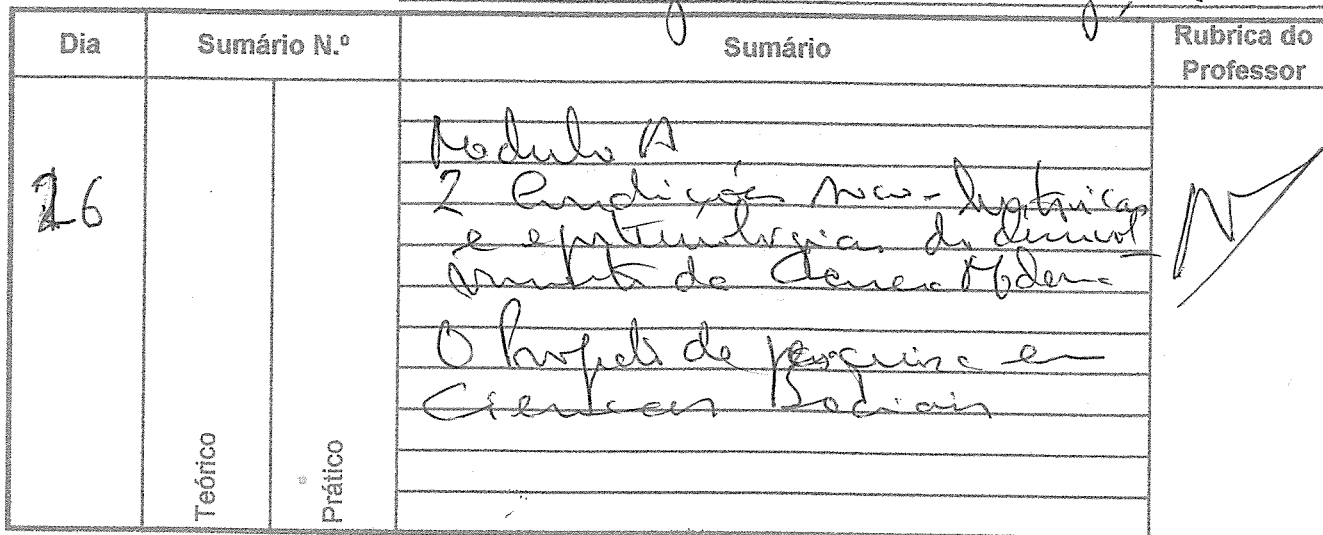 Dia Sumário N.º Sumário Rubrica do Professor
26
Teórico
Prático
Modulo A
2 Condições socio-historicas
e epistemologicas do desenvol
vimento da Ciencia Moderna
O Projecto de pesquisa em
Ciencias Sociais